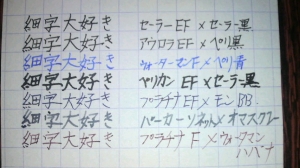 細字大好き セーラーEF×セーラー黒
細字大好き アウロラEF×ペリ黒
細字大好き ウォーターマンF×ペリ青
細字大好き ペリカンEF×セーラー黒
細字大好き プラチナEF×モンBB
細字大好き パーカーソネットF×オマスグレー
細字大好き プラチナF×ウォーターマン
ハバナ